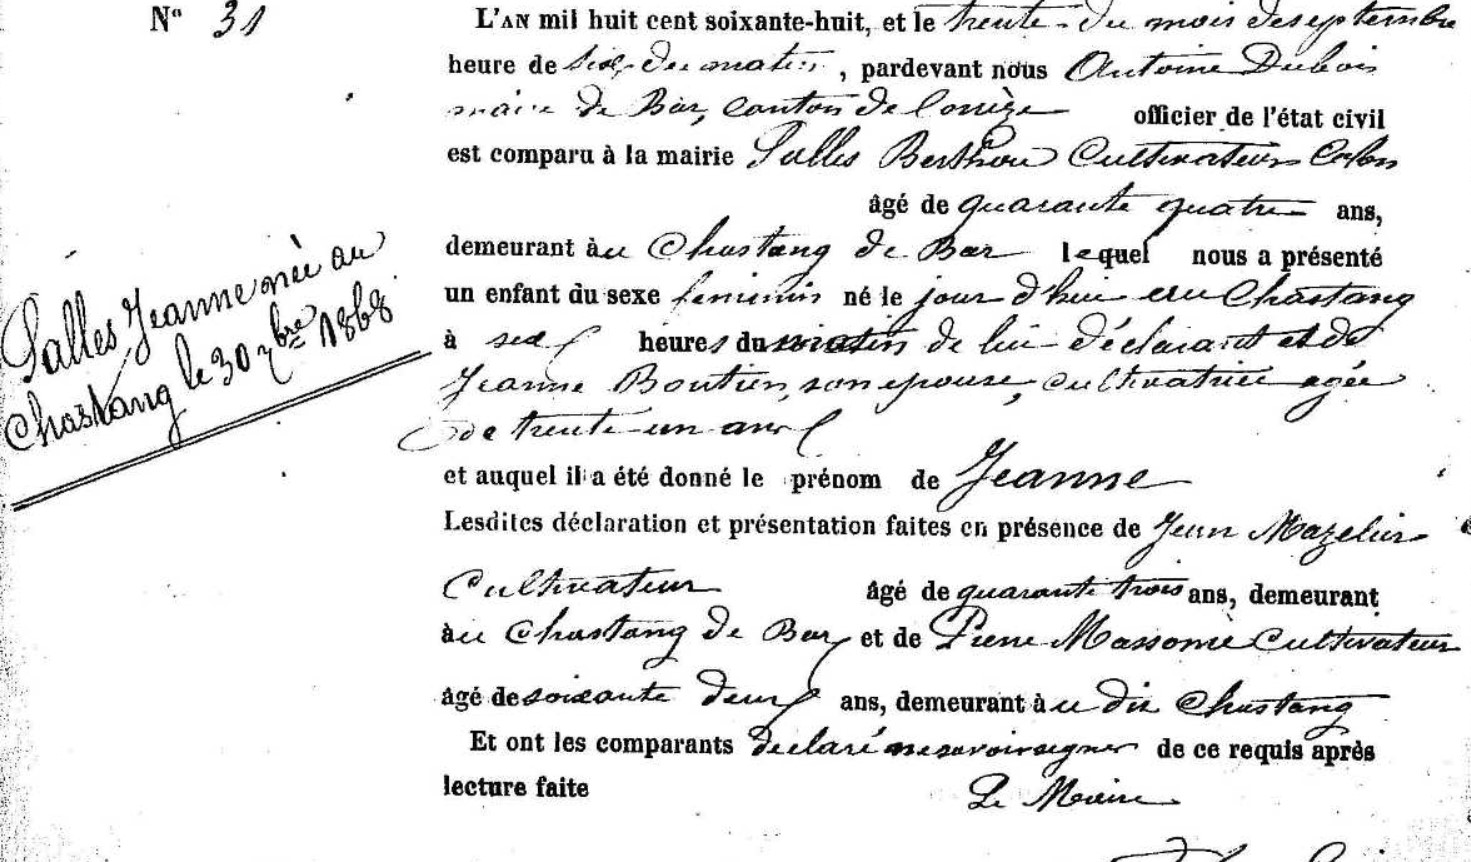 N° 31
L'AN mil huit cent soixante-huit, et le trente du mois de septembre
heure de six du matin, pardevant nous Antoine Dubois
maire de Bar, canton de Corrèze officier de l'état civil
est comparu à la mairie Salles Berthou Cultivateur Colon
âgé de quarante quatre ans,
demeurant àu Chastang de Bar lequel nous a présenté
un enfant du sexe feminin né le jour d'hui au Chastang
à six heures du matin de lui déclarant et de
Jeanne Boutien, son epouse, cultivatrice agée
de trente un ans
et auquel il a été donné le prénom de Jeanne
Lesdites déclaration et présentation faites en présence de Jean Mazelier
Cultivateur âgé de quarante trois ans, demeurant
àu Chastang de Bar et de Pierre Massonie Cultivateur
âgé de soixante deux ans, demeurant àu dit Chastang
Et ont les comparants déclaré ne savoir signer de ce requis après
lecture faite
Le Maire
Salles Jeanne née au
Chastang le 30 7bre 1868